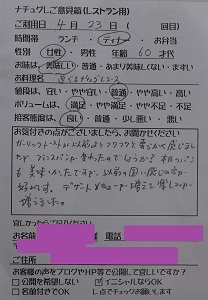 ナチュグレご意見箱(レストラン用)
ご利用日 4月 23日 ( 回目)
時間帯 ランチ・ディナー・お弁当
性別 女性・男性 年齢 60才代
お味は、美味しい・普通・あまり美味しくない・まずい
お料理名
値段は、安い・やや安い・普通・やや高い・高い
ボリュームは、満足・やや満足・やや不足・不足
接客態度は、良い・普通・少し悪い・悪い
お気付きの点がございましたら、お聞かせください
ガーリックトーストが以前よりフワフワと
フランスパンが変わったのでしょうか?
も美味しかったですが、以前の固い感じの方が
好みです。デザートもメニューが増えて楽しみが
増えました。
宜しかったらご記入ください
お名前 電話
ご住所
お客様の声をブログやHP等で公開して宜しいですか?
□公開を希望しない ☑イニシャルならOK
□名前付きでOK し点でチェックお願いします